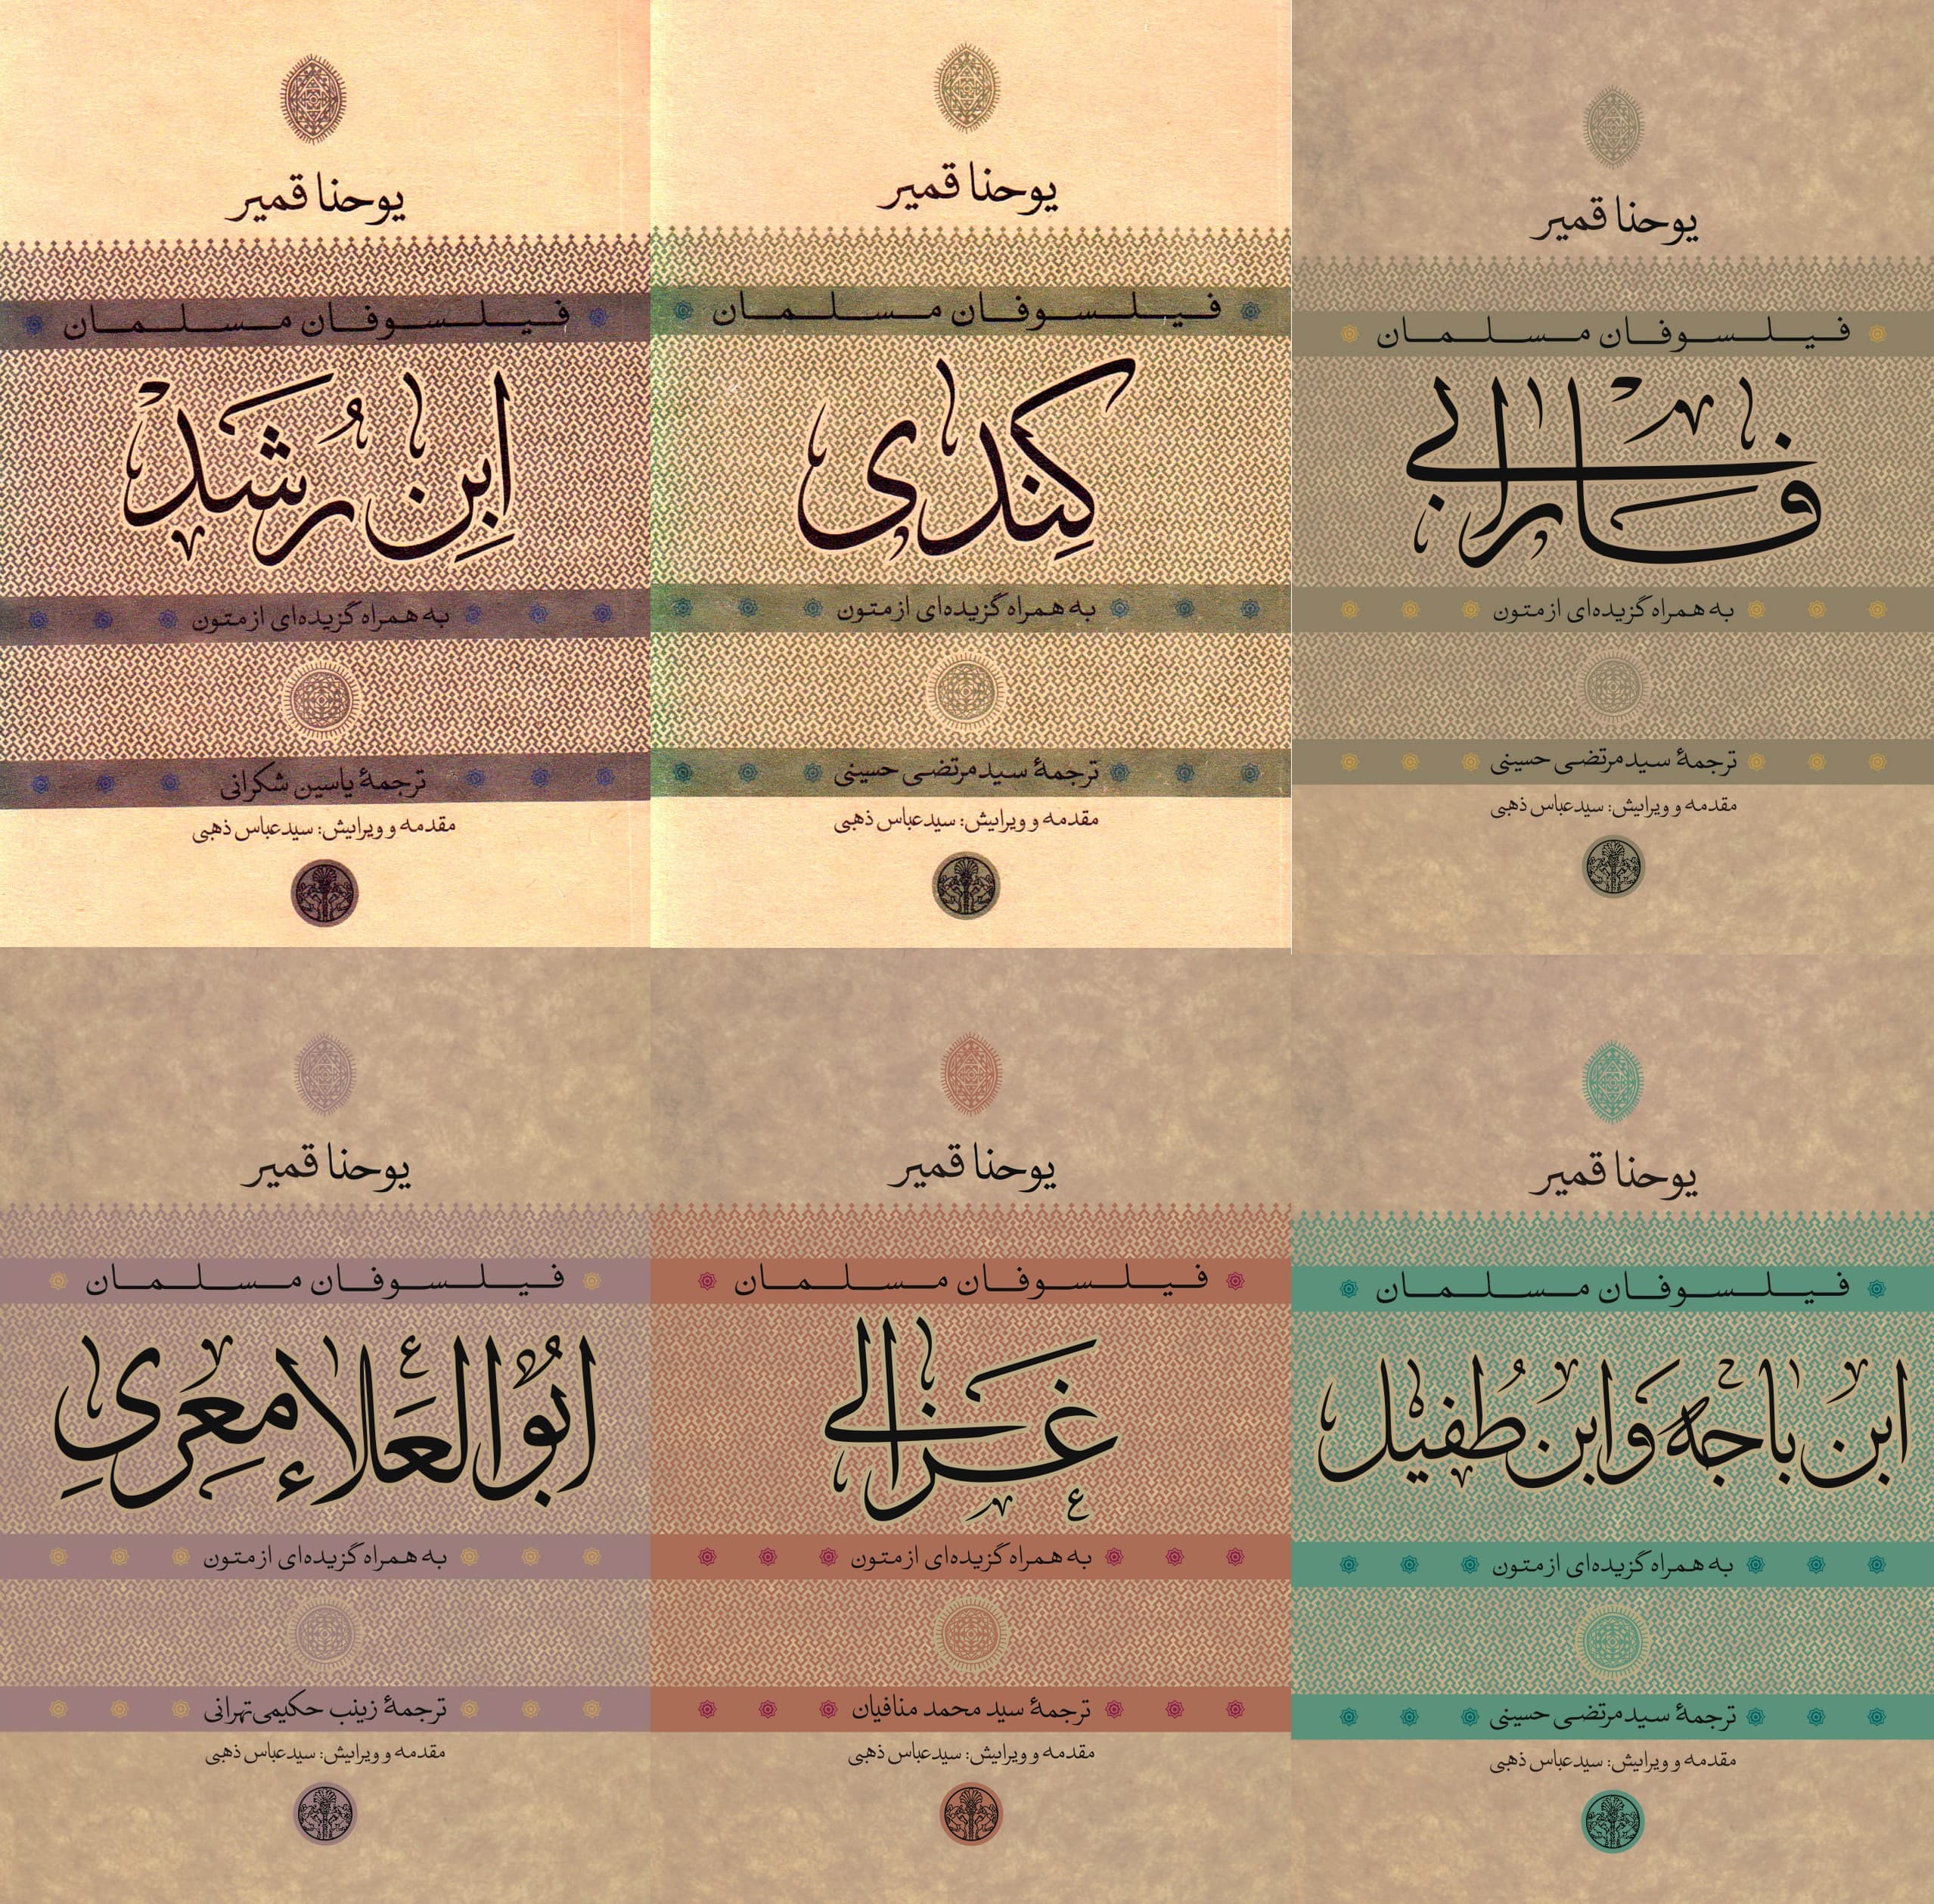 یوحنا قمیر
فیلسوفان مسلمان
ابن رشد
به همراه گزیده‌ای از متون
ترجمهٔ یاسین شکرانی
مقدمه و ویرایش: سیدعباس ذهبی
یوحنا قمیر
فیلسوفان مسلمان
کِندی
به همراه گزیده‌ای از متون
ترجمهٔ سیدمرتضی حسینی
مقدمه و ویرایش: سیدعباس ذهبی
یوحنا قمیر
فیلسوفان مسلمان
فارابی
به همراه گزیده‌ای از متون
ترجمهٔ سیدمرتضی حسینی
مقدمه و ویرایش: سیدعباس ذهبی
یوحنا قمیر
فیلسوفان مسلمان
ابوالعلاء معری
به همراه گزیده‌ای از متون
ترجمهٔ زینب حکیمی‌تهرانی
مقدمه و ویرایش: سیدعباس ذهبی
یوحنا قمیر
فیلسوفان مسلمان
غزالی
به همراه گزیده‌ای از متون
ترجمهٔ سید محمد منافیان
مقدمه و ویرایش: سیدعباس ذهبی
یوحنا قمیر
فیلسوفان مسلمان
ابن باجه و ابن طفیل
به همراه گزیده‌ای از متون
ترجمهٔ سیدمرتضی حسینی
مقدمه و ویرایش: سیدعباس ذهبی